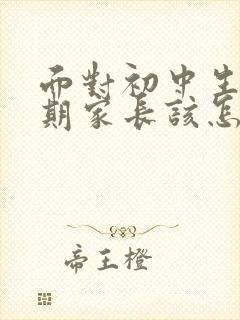 而對初中生
期家長該怎
帝王橙